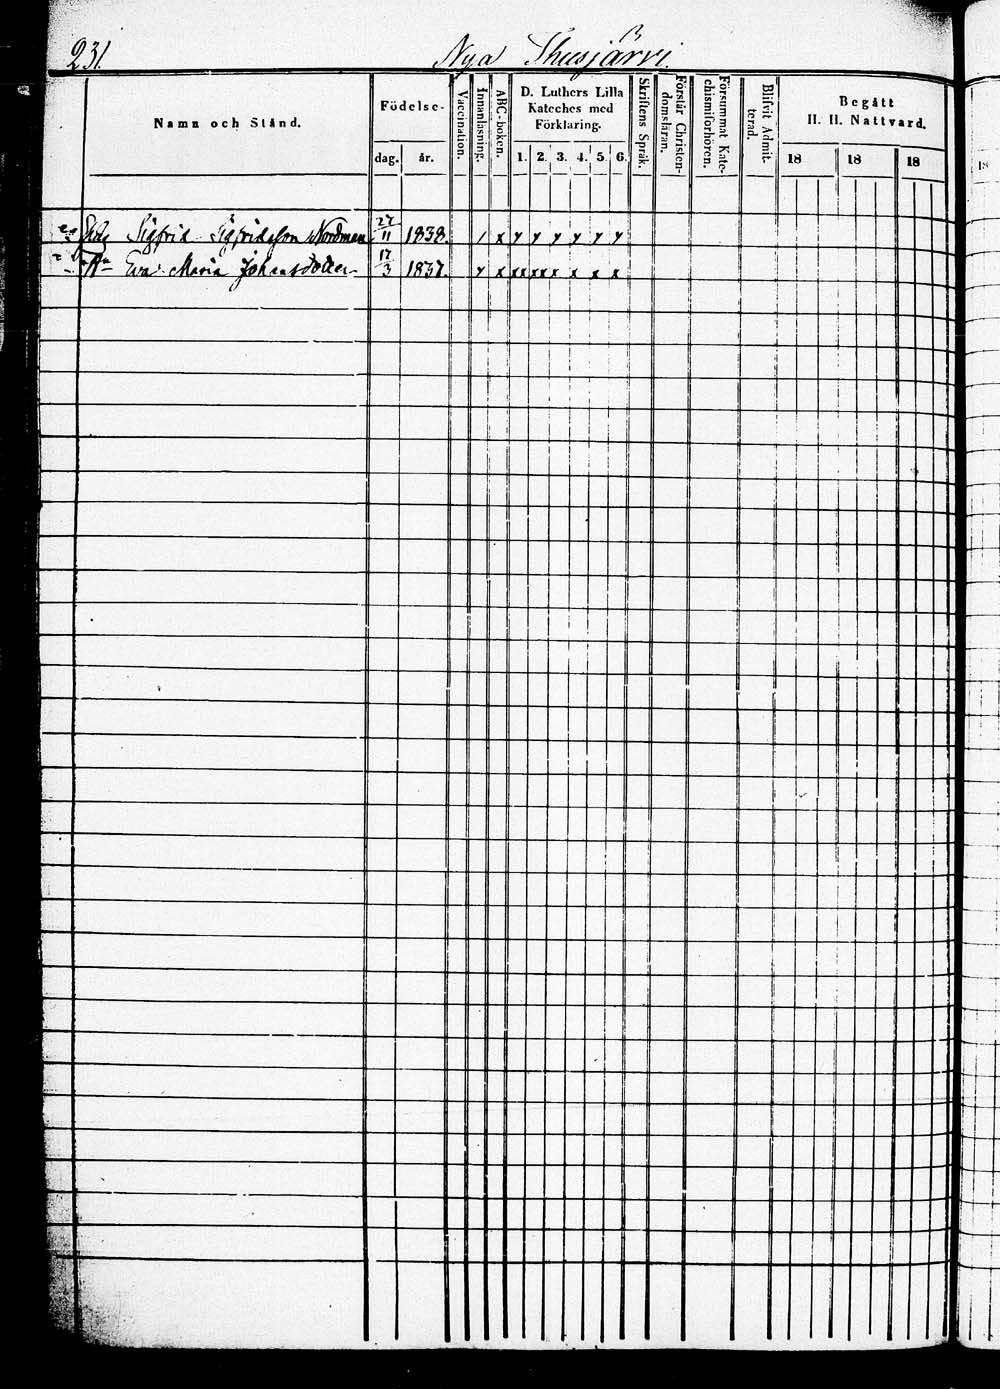 231.
Nya Thusjärvi.
Namn och Stånd.
Födelse-
dag. år.
Vaccination.
Innanläsning.
ABC-boken.
D. Luthers Lilla
Kateches med
Förklaring.
1. 2. 3. 4. 5. 6.
Skriftens Språk.
Förstår Christen-
domsläran.
Försummat Kate-
chismiförhören.
Blifvit Admit-
terad.
Begått
H. H. Nattvard.
18 18 18
Sigfrid Sigfridsson Nordman 27/11 1838. / x y y y y y y
Eva Maria Johansdotter 17/3 1837. y x xx xxx x x x x